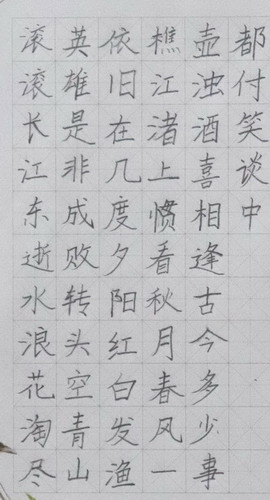 滚滚长江东逝水浪花淘尽
英雄是非成败转头空青山
依旧在几度夕阳红白发渔
樵江渚上惯看秋月春风一
壶浊酒喜相逢古今多少事
都付笑谈中